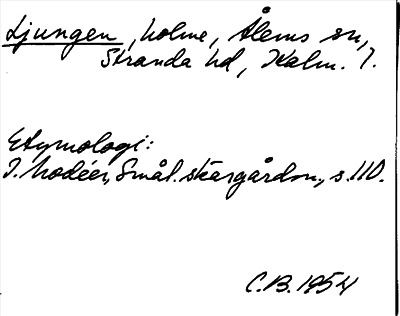 Ljungen, holme, Ålems sn,
Stranda hd, Kalm. l.
Etymologi:
I. Modéer, Smål. skärgårdsn., s. 110.
C.B. 1954